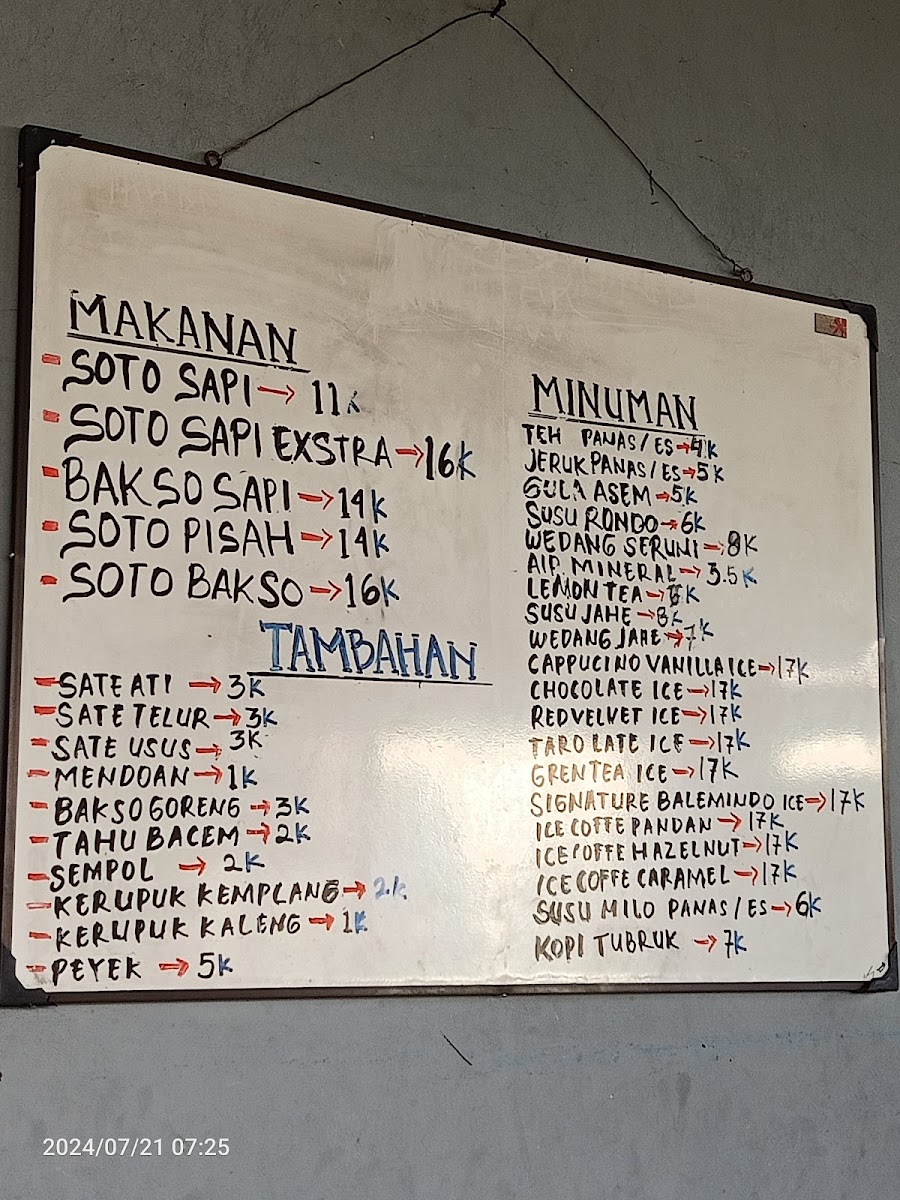 MAKANAN
- SOTO SAPI → 11K
- SOTO SAPI EXSTRA → 16K
- BAKSO SAPI → 14K
- SOTO PISAH → 14K
- SOTO BAKSO → 16K
TAMBAHAN
- SATE ATI → 3K
- SATE TELUR → 3K
- SATE USUS → 3K
- MENDOAN → 1K
- BAKSO GORENG → 3K
- TAHU BACEM → 2K
- SEMPOL → 2K
- KERUPUK KEMPLANG → 2.K
- KERUPUK KALENG → 1K
- PEYEK → 5K
MINUMAN
TEH PANAS/ES → 4K
JERUK PANAS/ES → 5K
GULA ASEM → 5K
SUSU RONDO → 6K
WEDANG SERUNI → 8K
AIR MINERAL → 3.5K
LEMON TEA →
SUSU JAHE → 8K
WEDANG JAHE → 7K
CAPPUCINO VANILLA ICE → 17K
CHOCOLATE ICE → 17K
REDVELVET ICE → 17K
TARO LATE ICE → 17K
GRENTEA ICE → 17K
SIGNATURE BALEMINDO ICE → 17K
ICE COFFE PANDAN → 17K
ICE COFFE HAZELNUT → 17K
ICE COFFE CARAMEL → 17K
SUSU MILO PANAS/ES → 6K
KOPI TUBRUK → 7K
2024/07/21 07:25